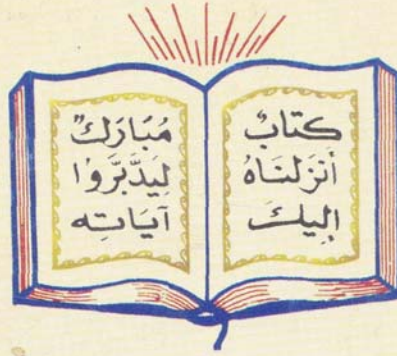 كتابٌ
أَنزَلنَاهُ
إِليكَ
مُبَارَكٌ
لِيَدَّبَّرَوُا
آيَاتِه